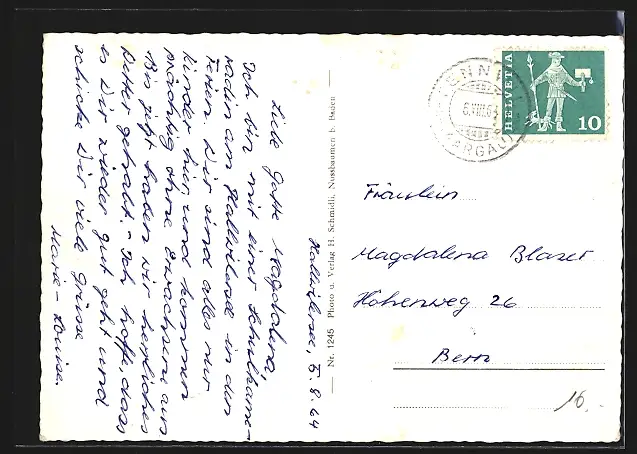 Hallwilersee, 5.8.64
Liebe Gotte Magdalena,
Ich bin mit einer Schulkame-
radin am Hallwilersee in den
Ferien. Wir sind alles nur
Kinder hier und kommen
prächtig ohne Erwachsene aus
Bis jetzt haben wir herrliches
Wetter gehabt. - Ich hoffe, dass
es Dir wieder gut geht und
schicke Dir viele Grüsse
Marie-Louise.
Nr. 1245 Photo u. Verlag H. Schmidli, Nussbaumen b. Baden
HELVETIA
10
(AARGAU)
Fräulein
Magdalena Blaser
Höhenweg 26
Bern
10.-